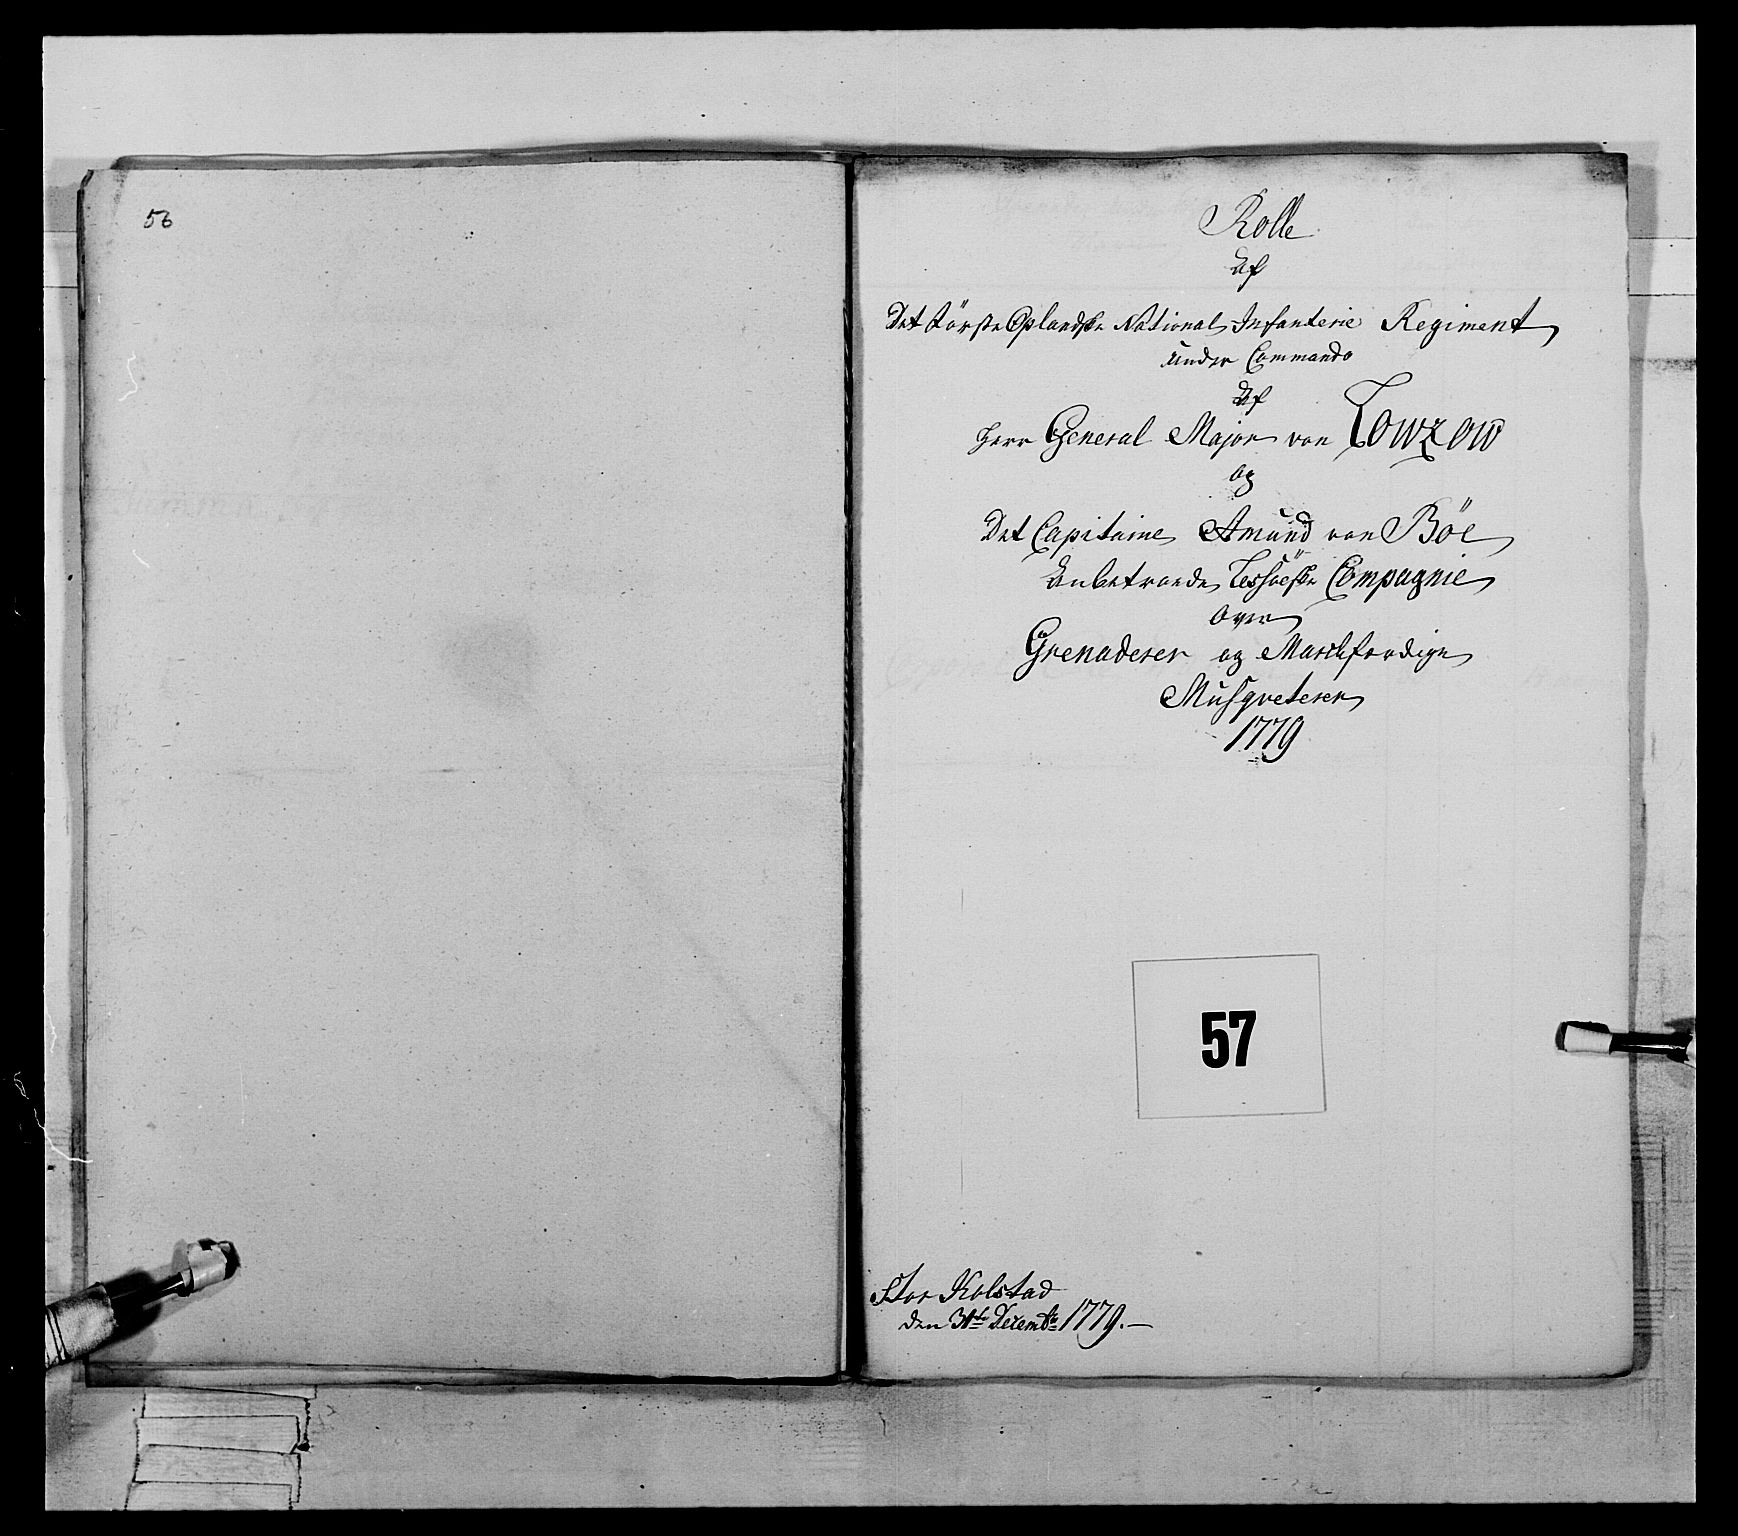 56
Rolle
Af
Det Første Oplandske National Infanterie Regiment
under Commando
Af
Herr General Major von Lowzow
og
Det Capitaine Amund von Böe
Anbetroede Lessöeske Compagnie
Over
Grenaderer og Marschfærdige
Musqveterer
1779
57
Stor Kolstad
den 31te Decembr 1779.—